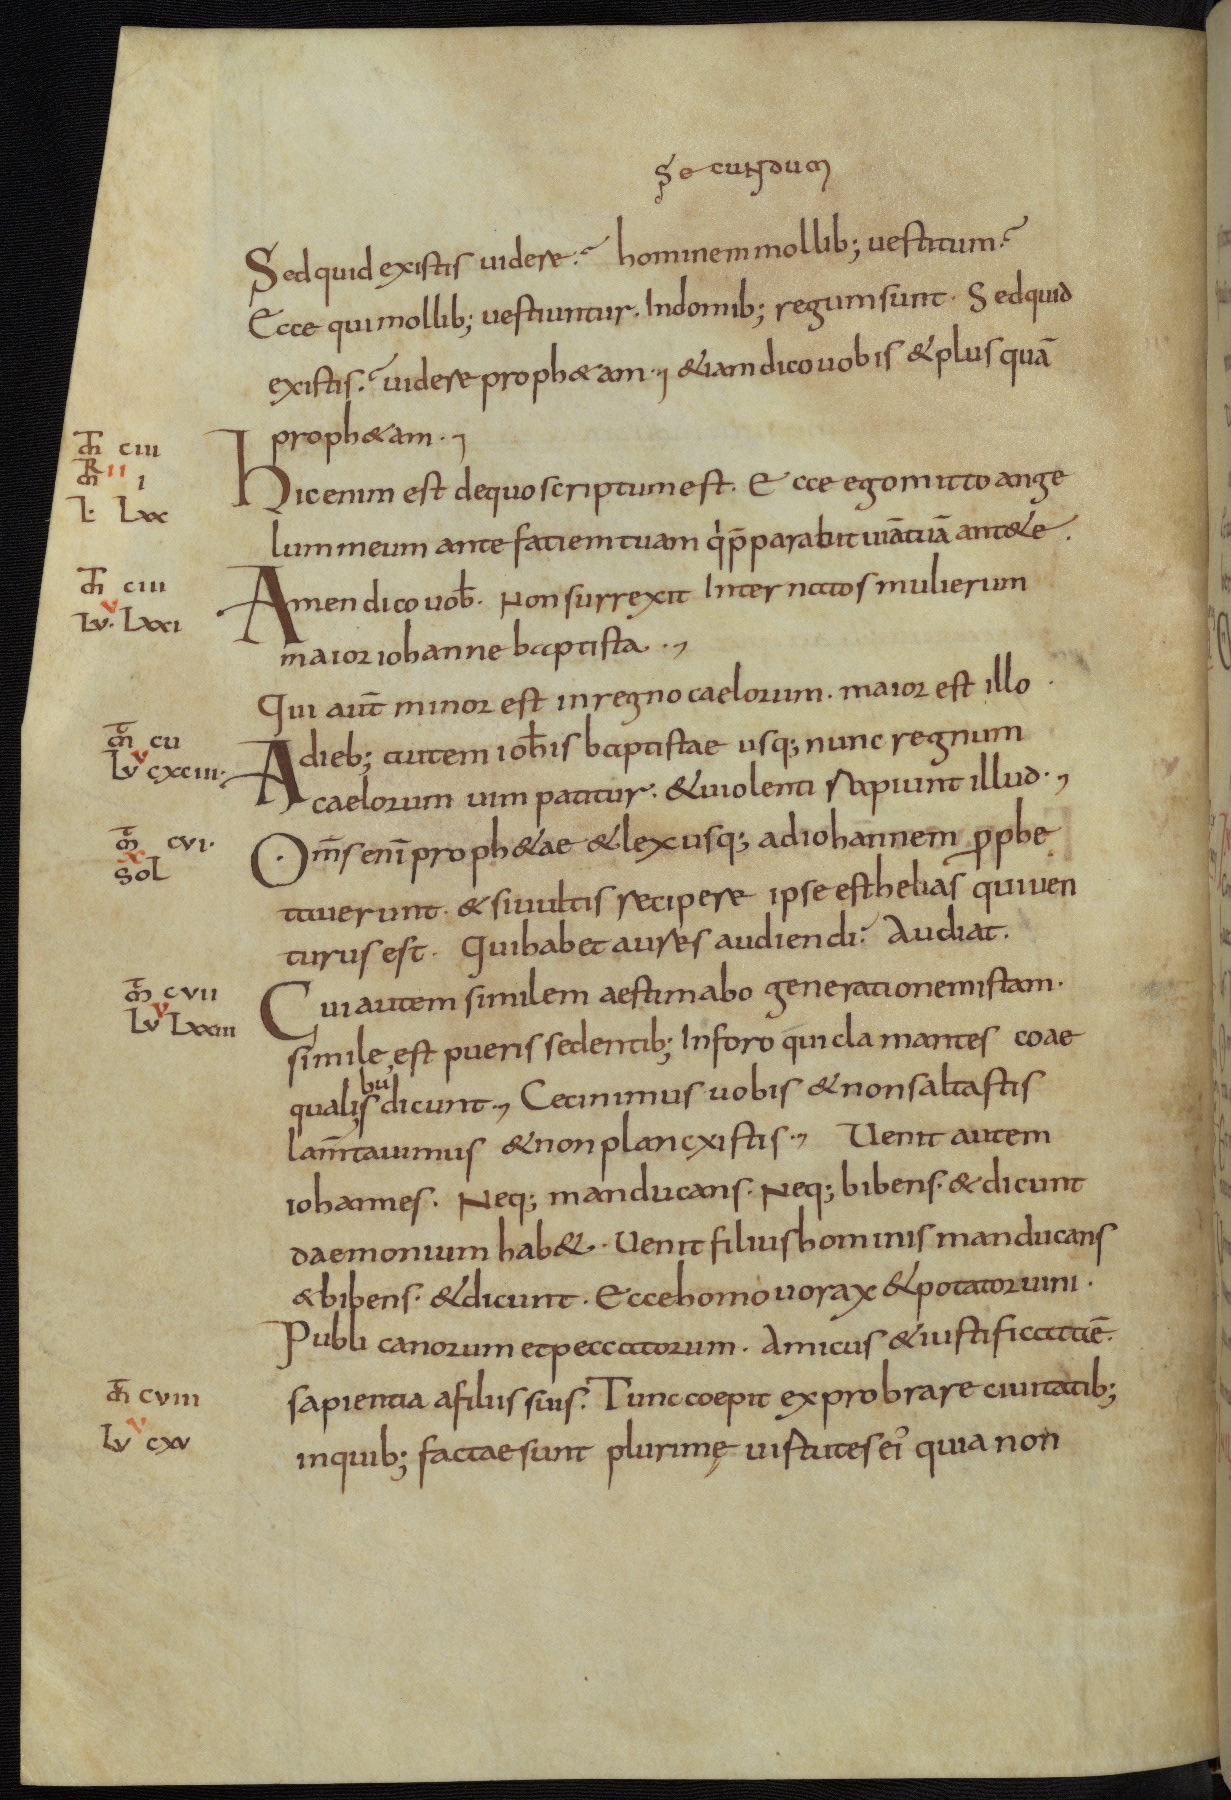 Secundum
Sed quid existis videre? hominem mollib; vestitum?
Ecce qui mollib; vestiuntur. In domib; regum sunt. Sed quid
existis? videre proph&am. &iam dico vobis & plus quā
proph&am.
m̄ ciii
m̄R ii i
L. Lxx
Hic enim est de quo scriptum est. Ecce ego mitto ange
lum meum ante faciem tuam q̇ p̄parabit viā tuā ant& e.
m̄ ciiii
Lu. v Lxxi
Amen dico vob̄. Non surrexit inter natos mulierum
maior iohanne baptista.
Qui aut̄ minor est in regno caelorum. maior est illo.
m̄ cv
Lu v cxciii.
A dieb; autem ioh̄is baptistae usq; nunc regnum
caelorum vim patitur. & violenti rapiunt illud.
m̄ cvi.
x
SoL
Om̄s enī proph&ae & lex usq; ad iohannem pphe
taverunt. & si vultis recipere ipse est helias qui ven
turus est. Qui habet aures audiendi? Audiat.
m̄ cvii
Lu v Lxxiii
Cui autem similem aestimabo generationem istam.
simile est pueris sedentib; in foro qui clamantes coae
qualis bu; dicunt. Cecinimus vobis & non saltastis
lam̄tavimus & non plancxistis. Venit autem
iohannes. Neq; manducans. Neq; bibens. & dicunt
daemonium hab&. Venit filius hominis manducans
& bibens. & dicunt. Ecce homo vorax & potator vini.
Publicanorum et peccatorum. Amicus & iustificata ē.
m̄ cviii
Lu v cxv
sapientia a filiis suis. Tunc coepit exprobrare civitatib;
in quib; factae sunt plurimę virtutes ei' quia non